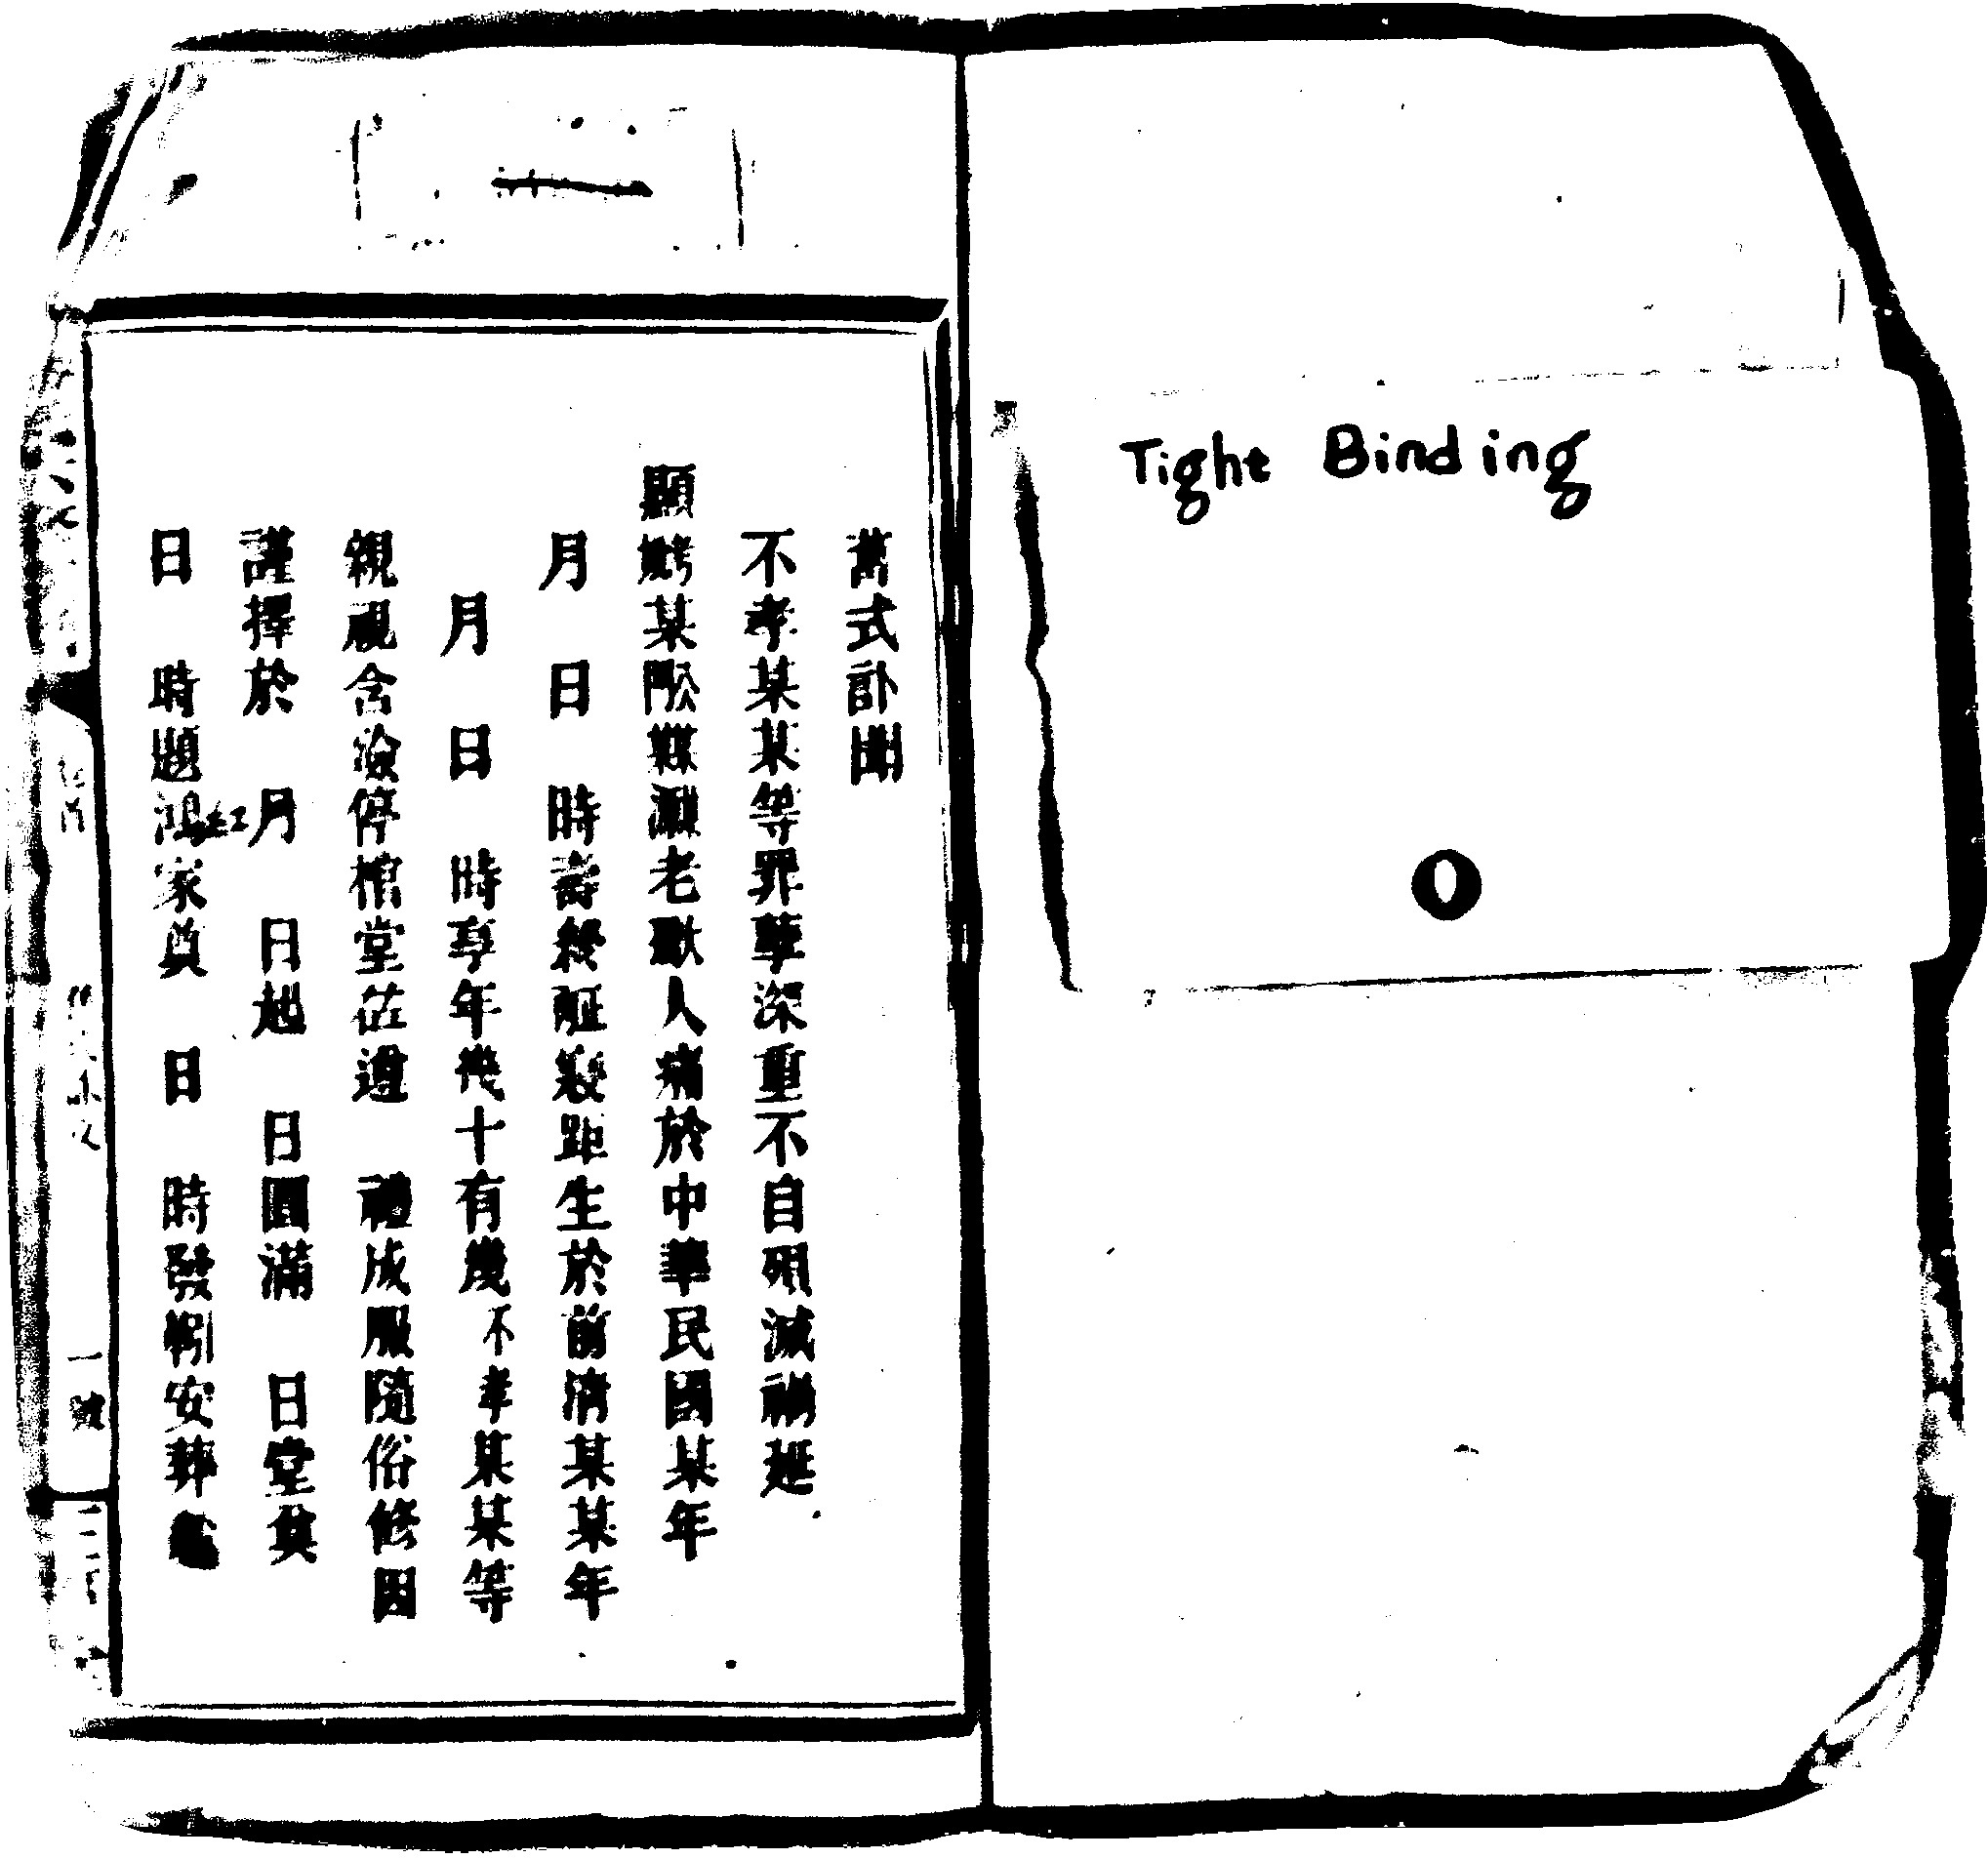 Tight Binding
舊式訃聞
不孝某某等罪孽深重不自殞滅禍延
顯 某 老 人痛於中華民國某年
月 日 時壽終 距生於前清某某年
月 日 時享年幾十有幾不孝某某等
親視含殮停棺堂 遵 禮成服隨俗修因
謹擇於 月 日起 日圓滿 日堂奠
日 時題鴻紅家奠 日 時發靷安葬
一 號